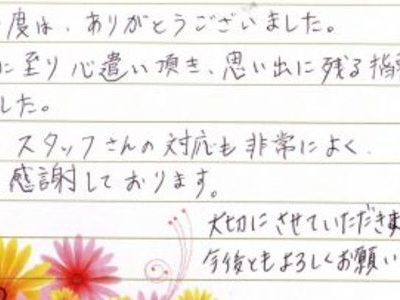 度は、ありがとうございました。
に至り心遣い頂き、思い出に残る指
した。
スタッフさんの対応も非常によく、
感謝しております。
大切にさせていただきま
今後ともよろしくお願い